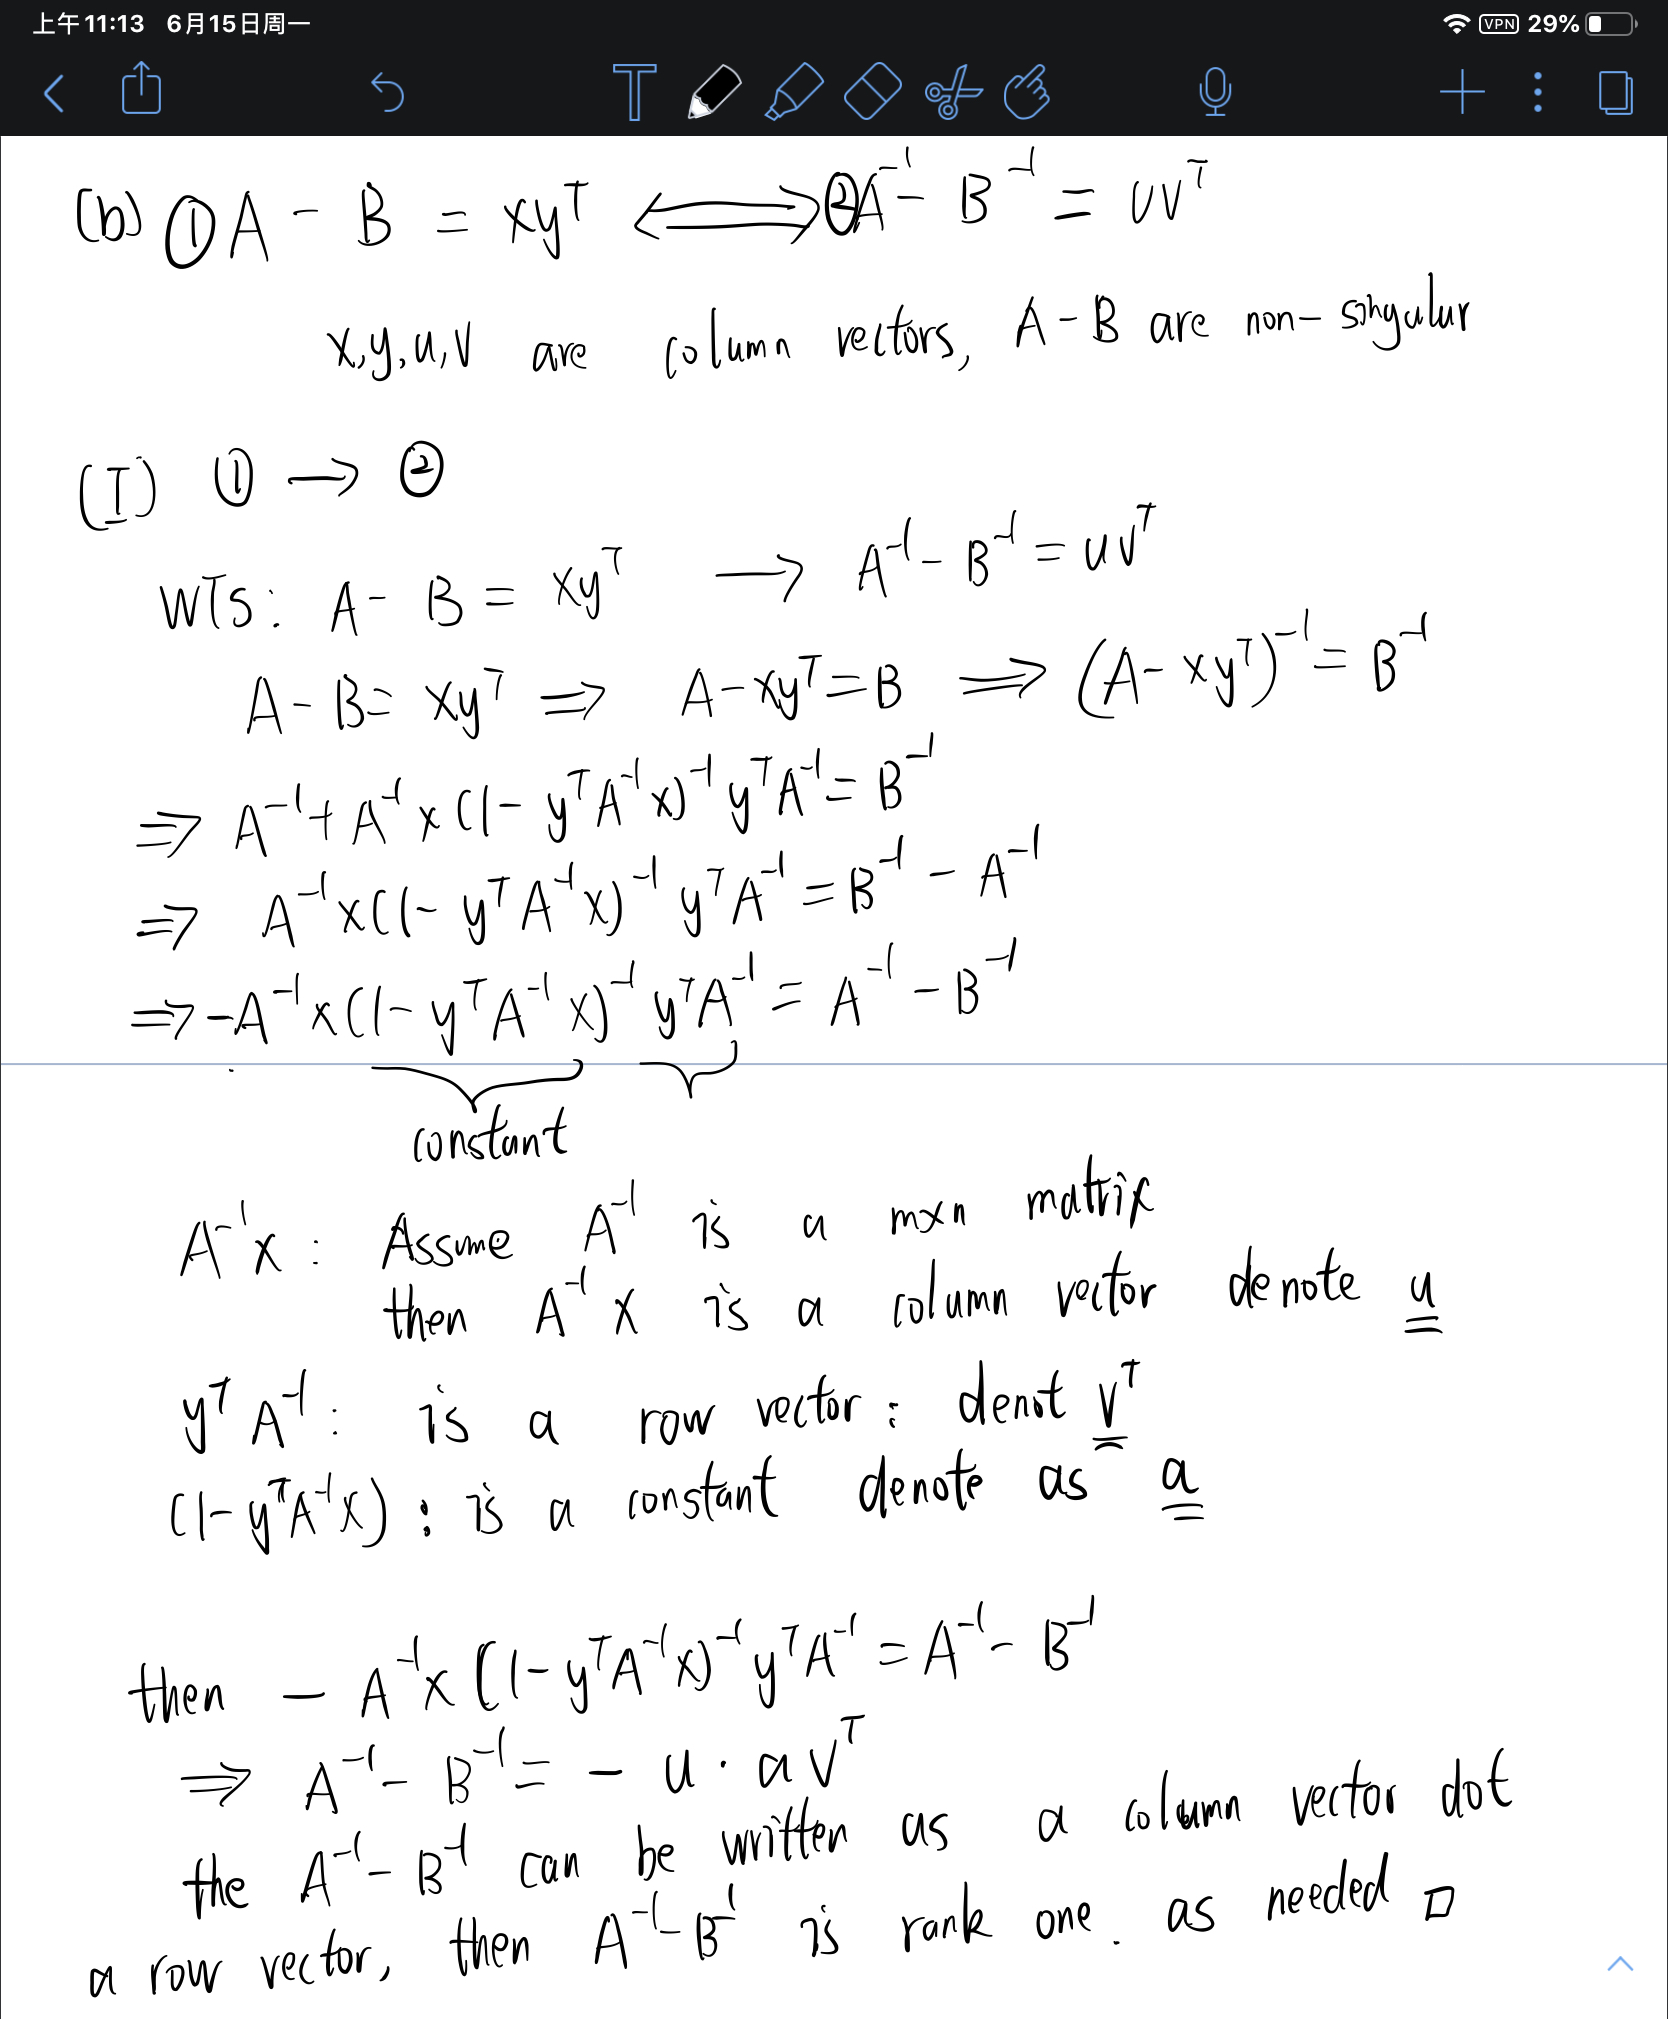 上午11:13 6月15日周一 VPN 29%
(b) ① A - B = xyᵀ ⟺ ② A⁻¹ - B⁻¹ = uvᵀ
x,y,u,v are column vectors, A-B are non-singular
(I) ① → ②
WTS: A - B = xyᵀ → A⁻¹ - B⁻¹ = uvᵀ
A - B = xyᵀ ⇒ A - xyᵀ = B ⇒ (A - xyᵀ)⁻¹ = B⁻¹
⇒ A⁻¹ + A⁻¹x(1 - yᵀA⁻¹x)⁻¹yᵀA⁻¹ = B⁻¹
⇒ A⁻¹x(1 - yᵀA⁻¹x)⁻¹yᵀA⁻¹ = B⁻¹ - A⁻¹
⇒ -A⁻¹x(1 - yᵀA⁻¹x)⁻¹yᵀA⁻¹ = A⁻¹ - B⁻¹
constant
A⁻¹x : Assume A⁻¹ is a mxn matrix
then A⁻¹x is a column vector denote u
yᵀA⁻¹ : is a row vector : denot vᵀ
(1 - yᵀA⁻¹x) : is a constant denote as a
then - A⁻¹x(1 - yᵀA⁻¹x)⁻¹yᵀA⁻¹ = A⁻¹ - B⁻¹
⇒ A⁻¹ - B⁻¹ = - u · a vᵀ
the A⁻¹ - B⁻¹ can be written as a column vector dot
a row vector, then A⁻¹ - B⁻¹ is rank one. as needed □